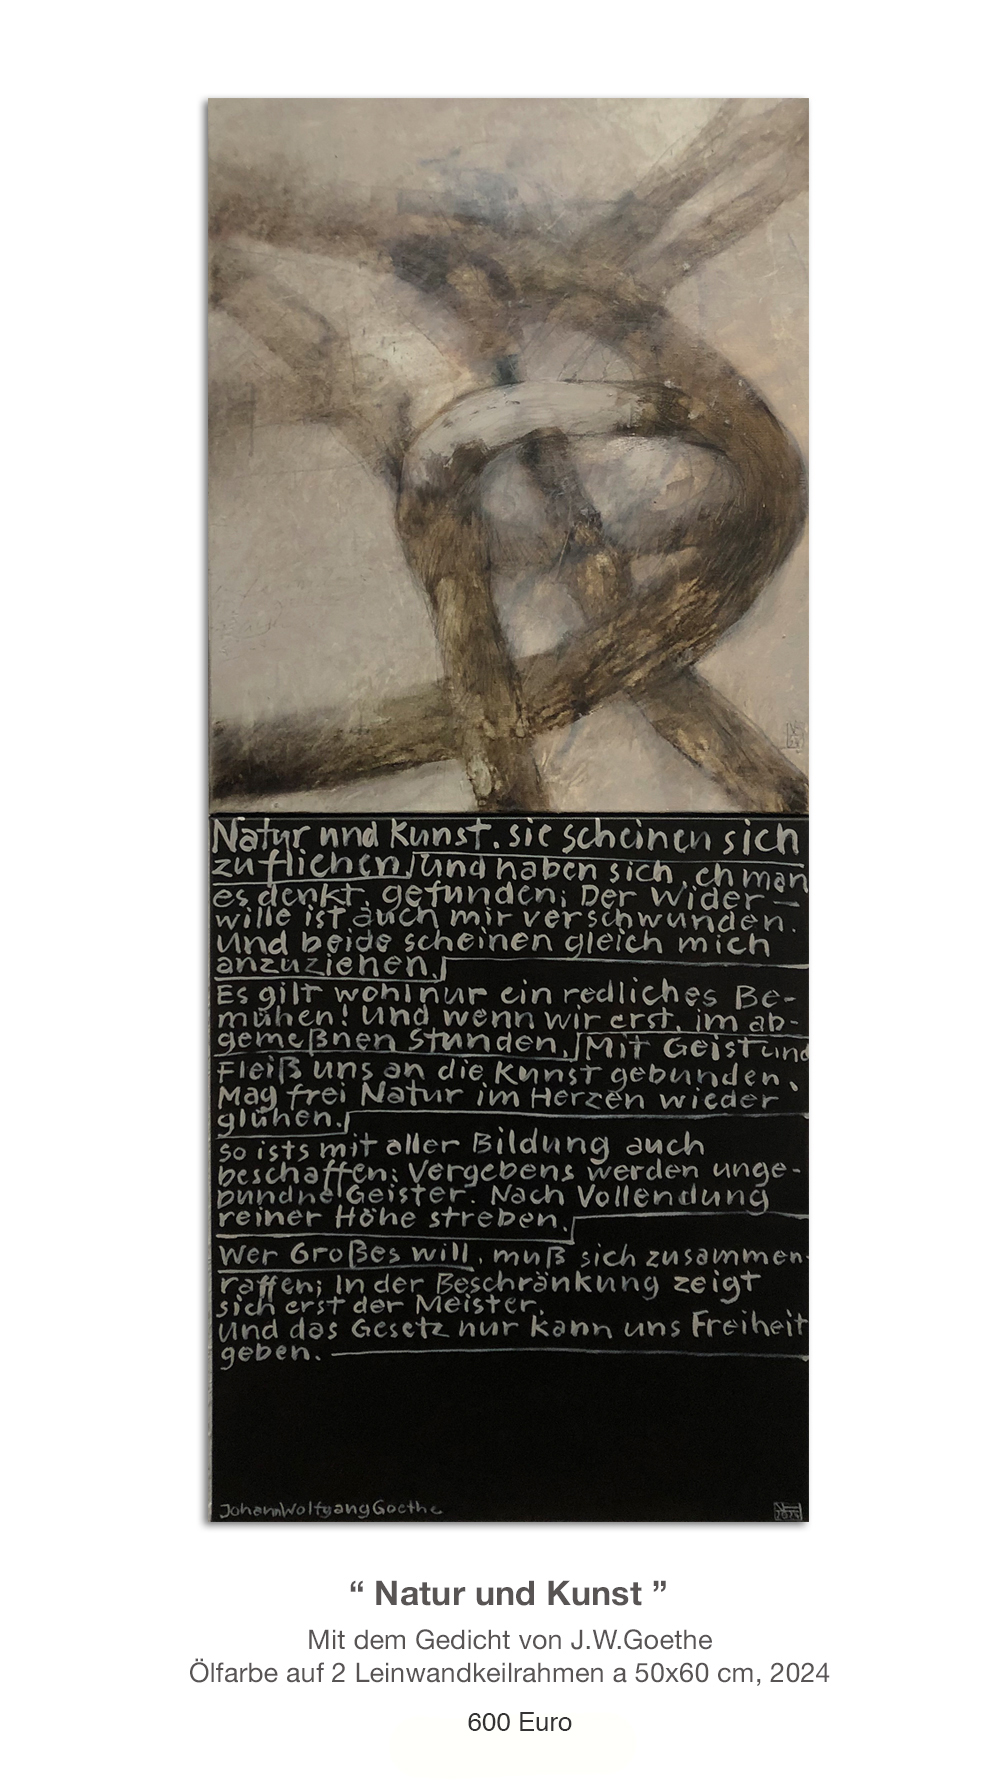 Natur und Kunst, sie scheinen sich
zu fliehen, und haben sich, eh man
es denkt, gefunden; Der Wider-
wille ist auch mir verschwunden.
Und beide scheinen gleich mich
anzuziehen.
Es gilt wohl nur ein redliches Be-
mühen! Und wenn wir erst, im ab-
gemeßnen Stunden, Mit Geist und
Fleiß uns an die Kunst gebunden,
Mag frei Natur im Herzen wieder
glühen.
so ists mit aller Bildung auch
beschaffen: Vergebens werden unge-
bundne Geister. Nach Vollendung
reiner Höhe streben.
Wer Großes will, muß sich zusammen-
raffen; In der Beschränkung zeigt
sich erst der Meister.
Und das Gesetz nur kann uns Freiheit
geben.
Johann Wolfgang Goethe
“ Natur und Kunst ”
Mit dem Gedicht von J.W.Goethe
Ölfarbe auf 2 Leinwandkeilrahmen a 50x60 cm, 2024
600 Euro